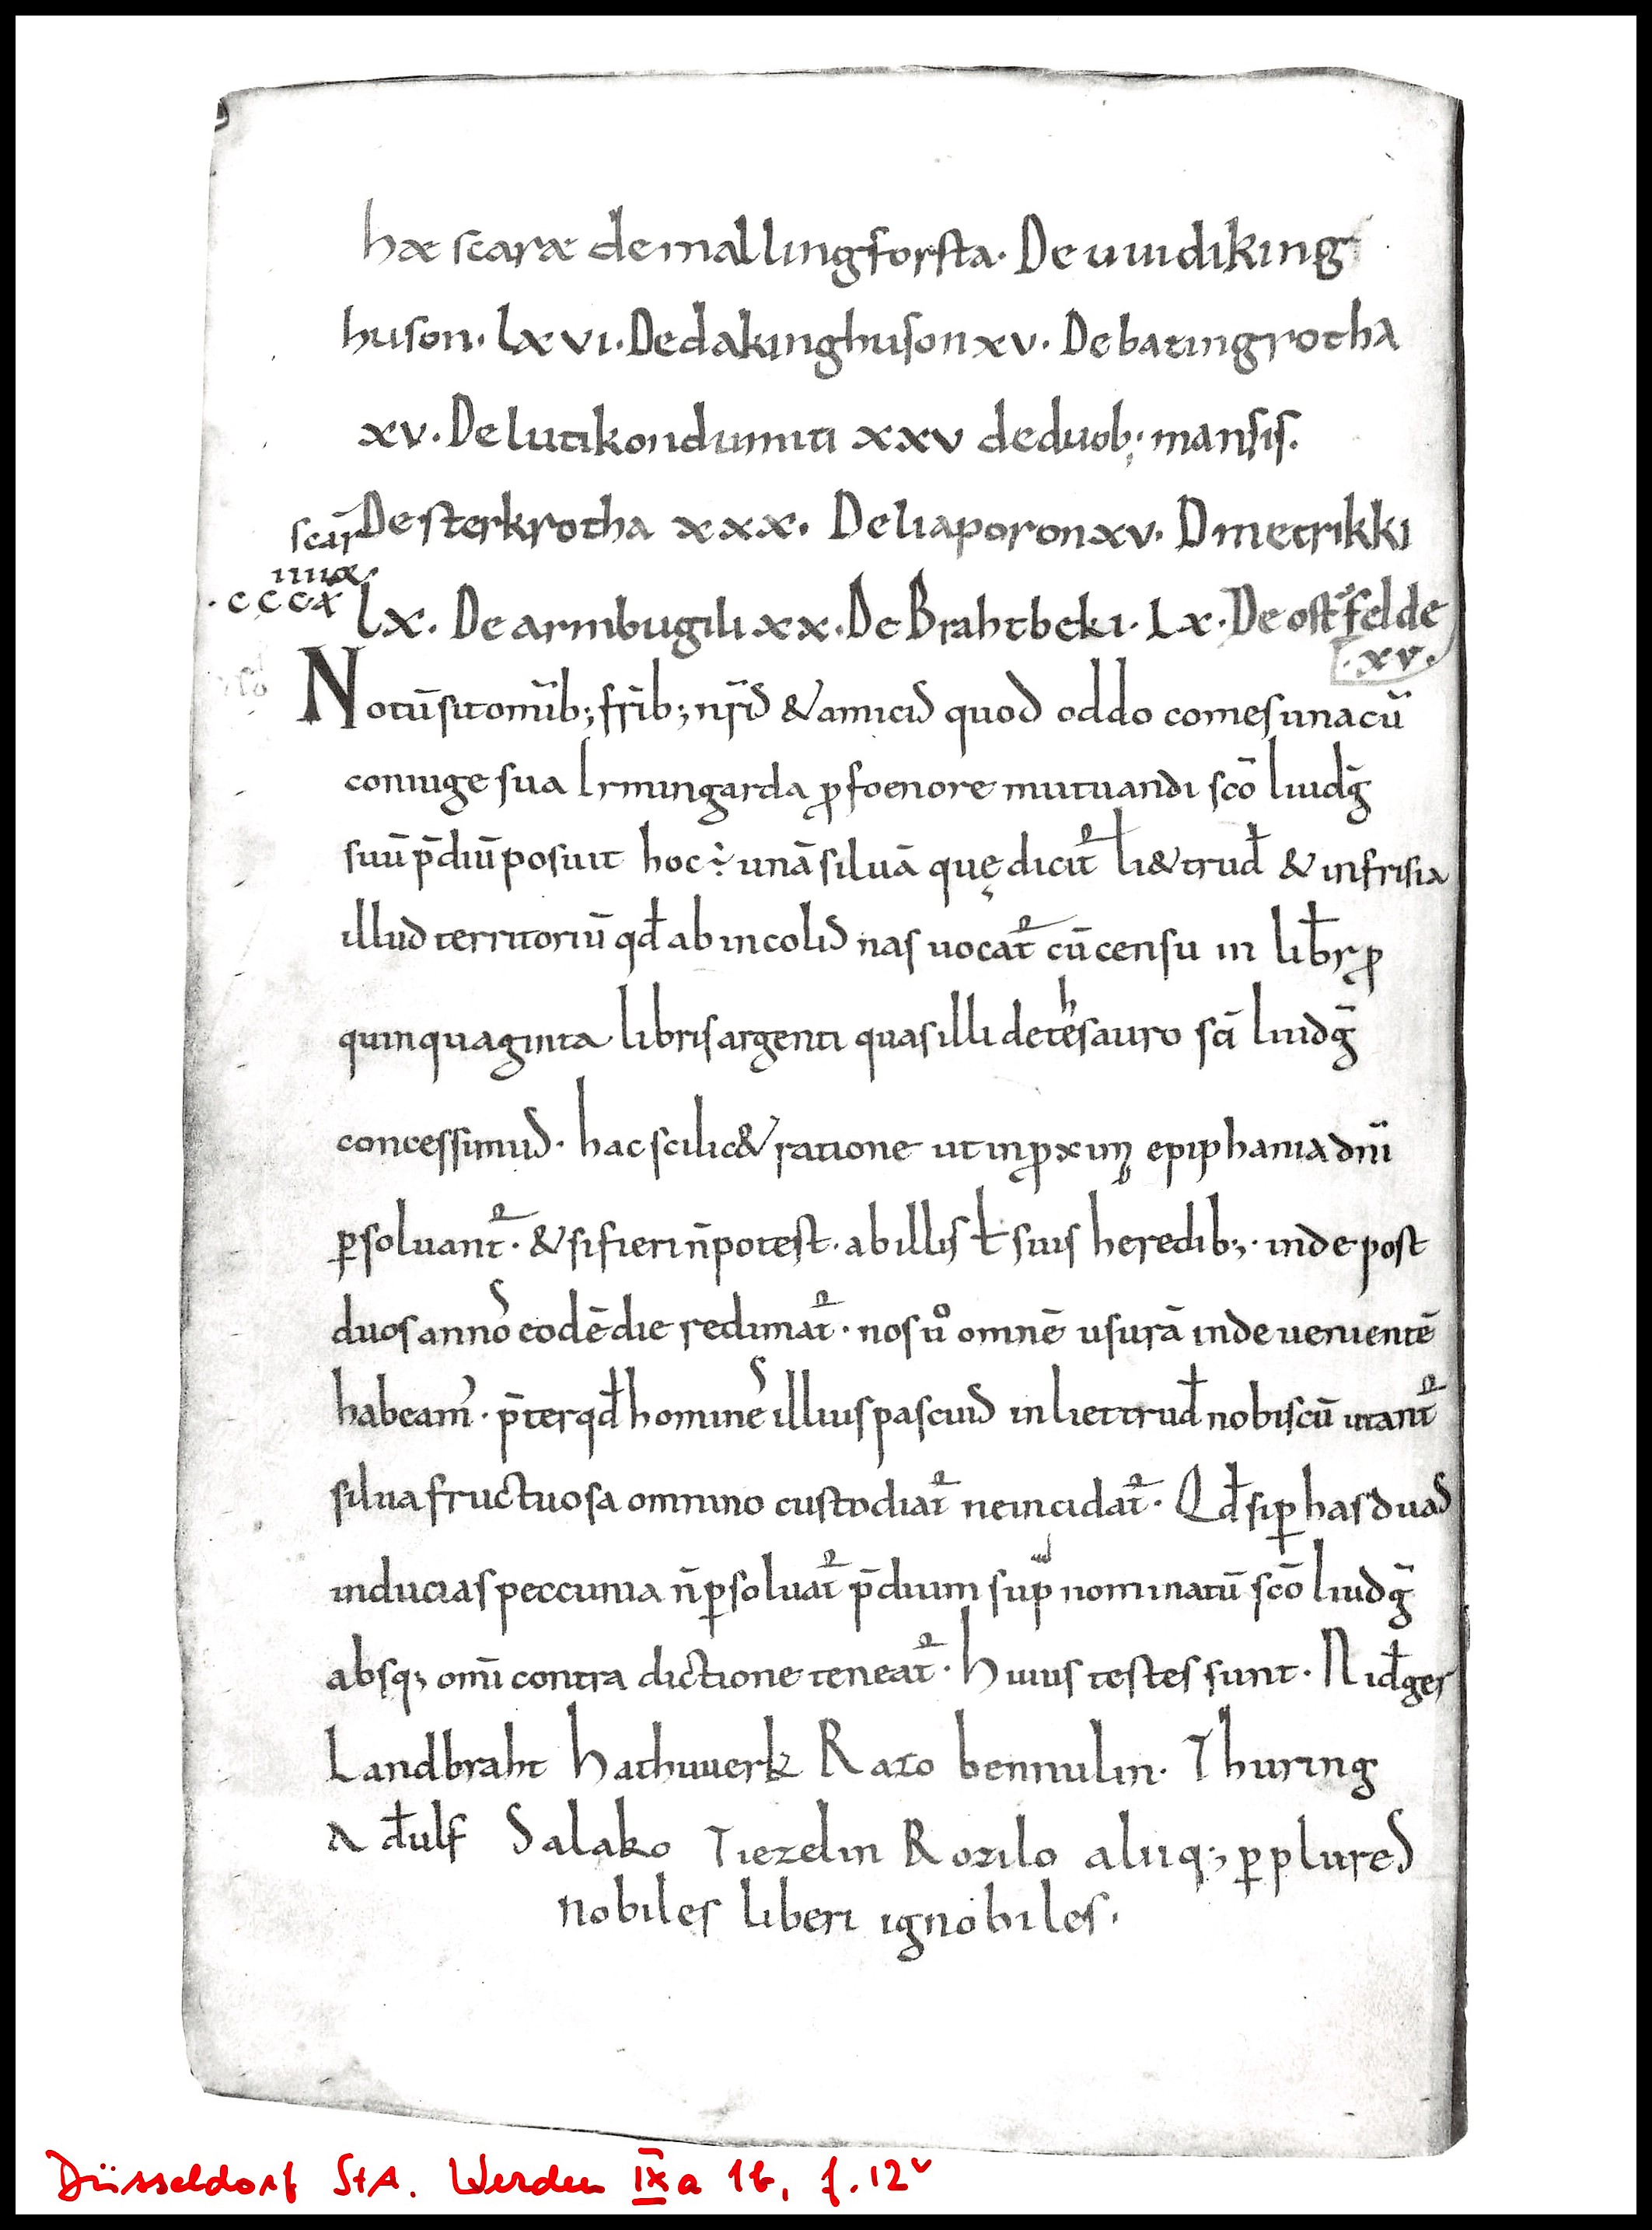 hæ scaræ de mallingforsta. De uuidiking
huson. lxvi. De dakinghuson xv. De batingrotha
xv. De lutikondumiti xxv de duob; mansis.
scar̄ De sterkrotha xxx. De liaporon xv. D metrikki
.cccx iiiiæ. lx. De armbugili xx. De Brahtbeki. Lx. De ost felde
.xv.
Notū sit omīb; fr̄ib; nr̄is & amicis quod oddo comes una cū
coniuge sua Irmingarda ꝓ foenore mutuandi sc̄o liudḡ
suū p̄diū posuit hoc ÷ unā siluā quę dicit᷑ li&trud̄ & in frisia
illud territoriū qd̄ ab incolis nas uocat᷑ cū censu in lib̄r ꝓ
quinquaginta libris argenti quas illi de thesauro sc̄i liudḡ
concessimus. hac scilic& ratione ut in ꝓximo epiphania dn̄i
ꝑsoluant᷑. & si fieri n̄ potest. ab illis ł suis heredib;. inde post
duos annos eodē die redimat᷑. nos ů omnē usurā inde uenientē
habeam᾿. p̄ter qd̄ homines illius pascuis in liettrud̄ nobiscū utant᷑
silua fructuosa omnino custodiat᷑ ne incidat᷑. Qd̄ si ꝑ has duas
inducias peccunia n̄ ꝑsoluat᷑ p̄dium sup nominatū sc̄o liudḡ
absq; omī contradictione teneat᷑. huius testes sunt. Nid̄ger
Landbraht hathuuerk Razo bennulin. Thuring
Ad̄ulf Salako Tiezelin Rozilo aliiq; ꝑplures
nobiles liberi ignobiles.
Düsseldorf StA. Werden IX a 1b, f. 12v